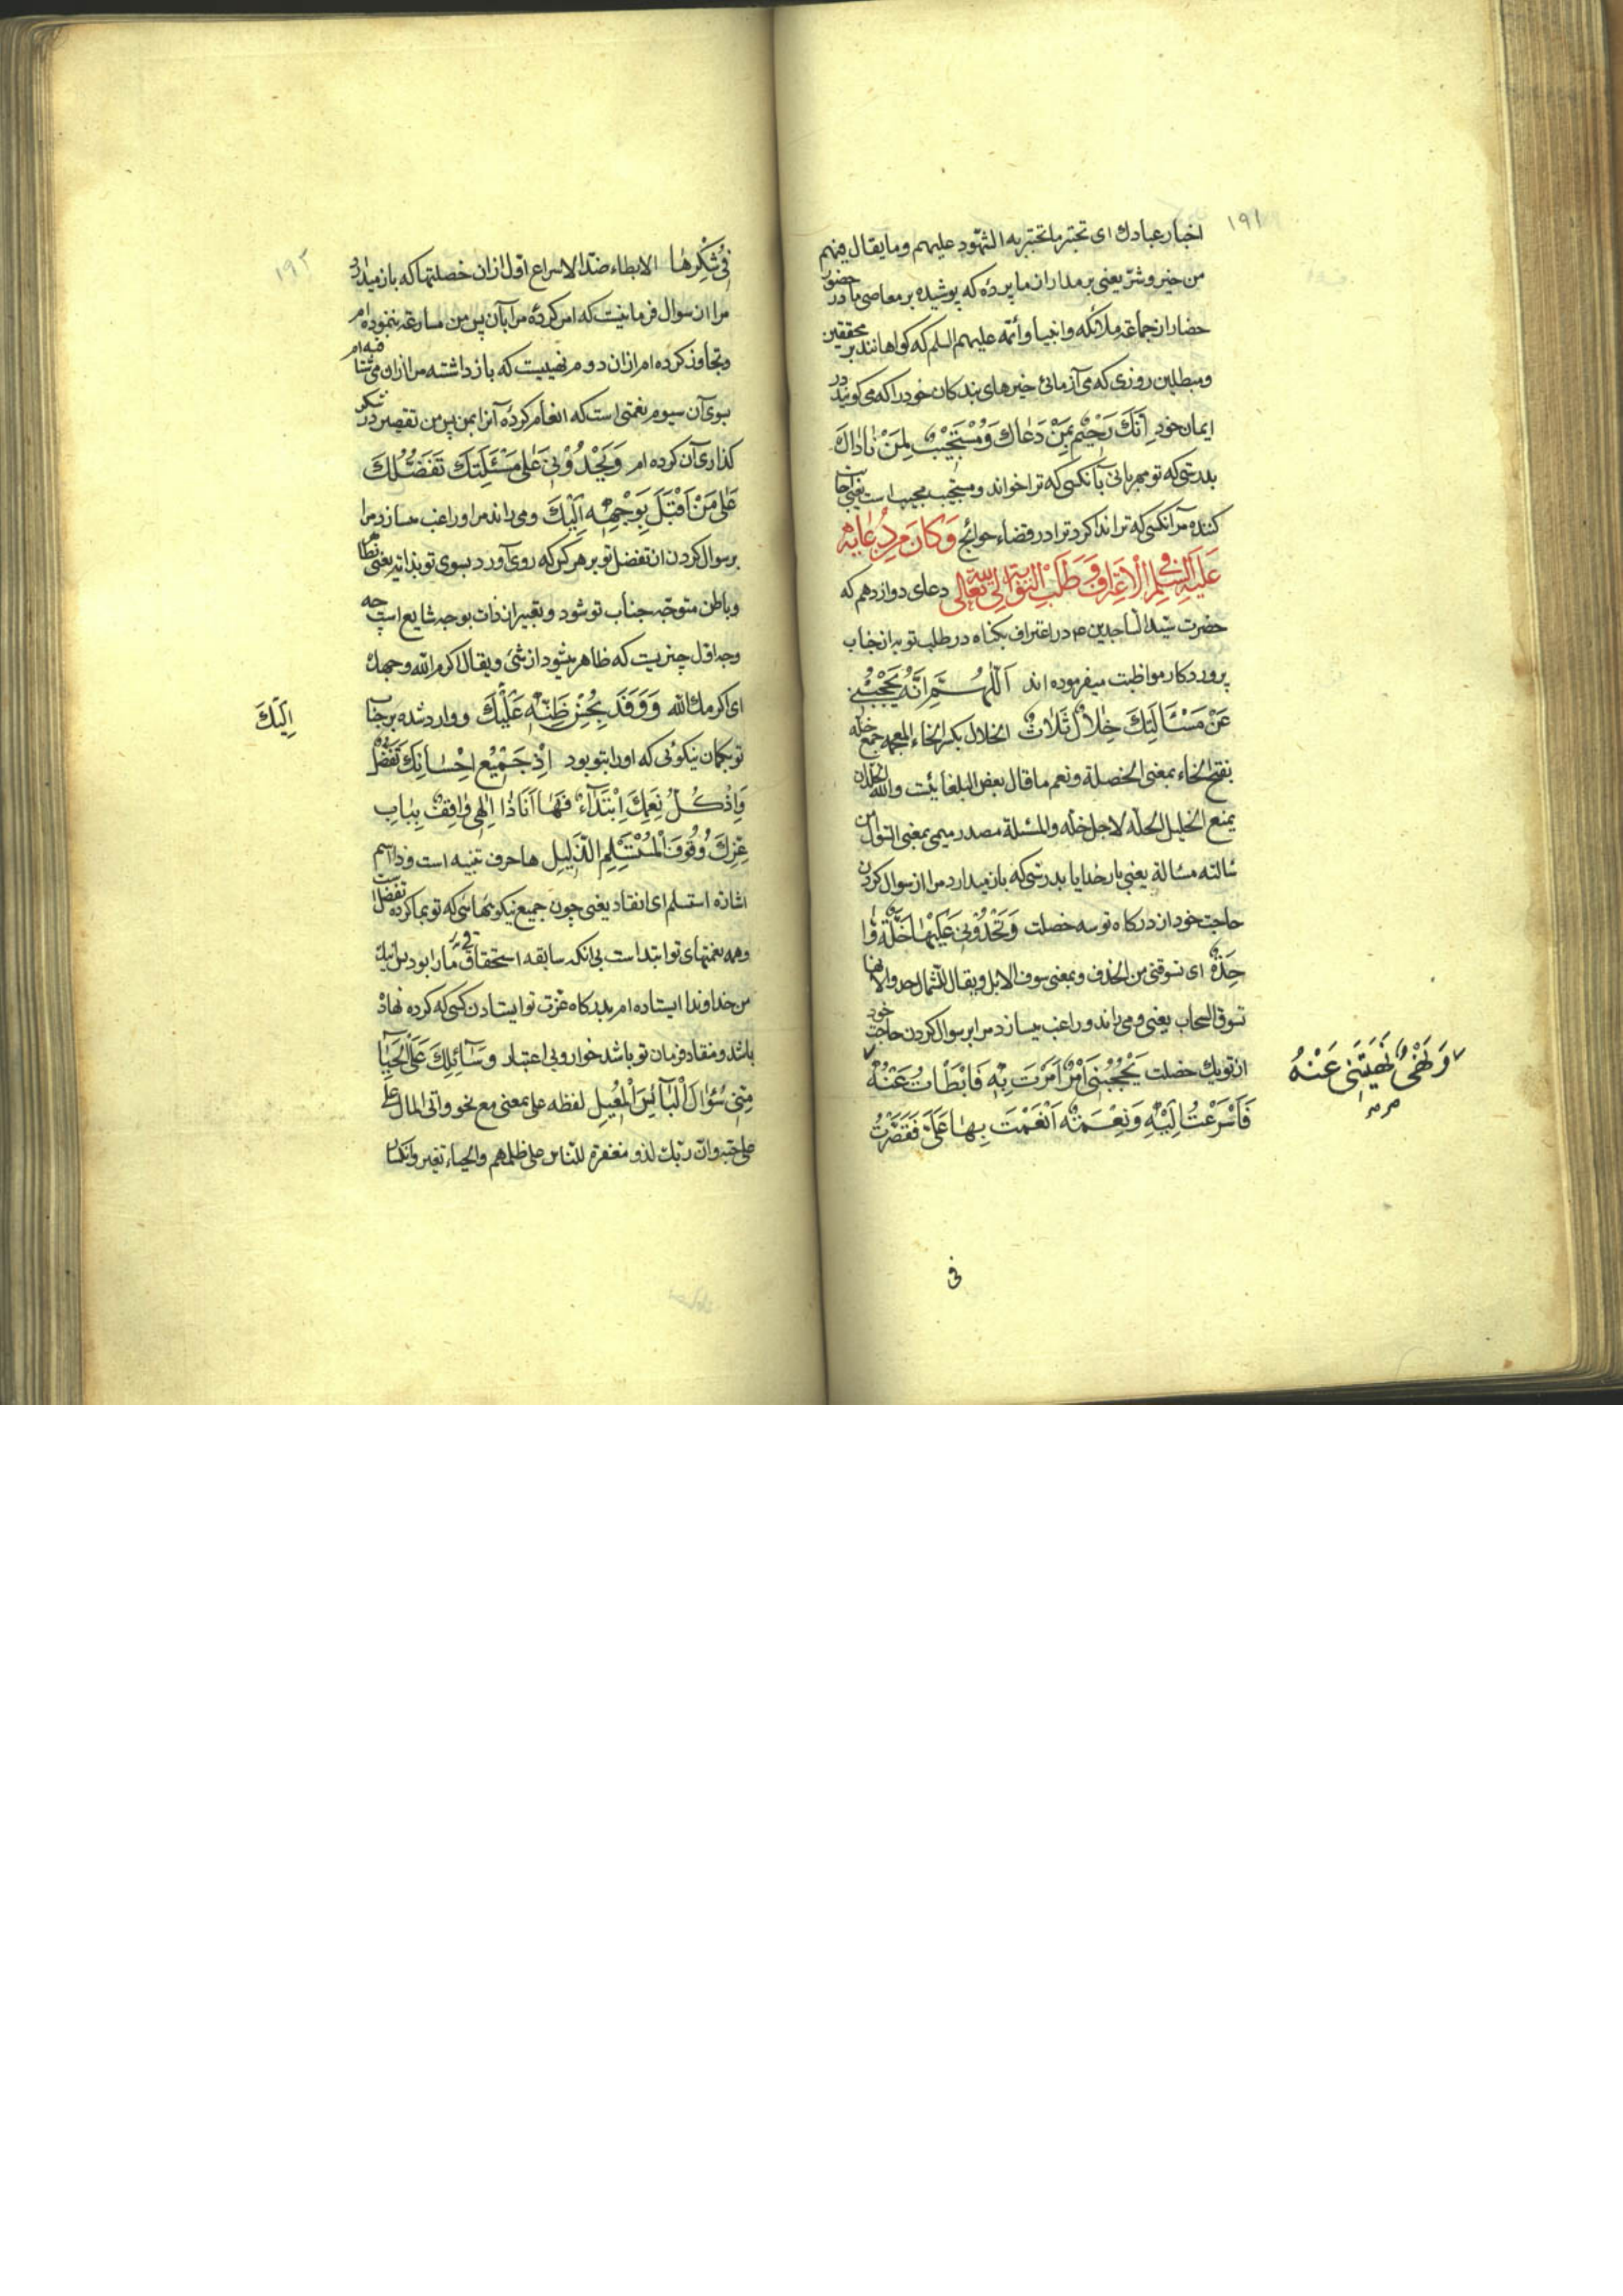 ۱۹۱
اخبار عبادك ای تختبر ما تختبر به الشهود علیهم وما یقال فیهم
من خیر وشرّ یعنی بر مدار از ما پردۀ که پوشیده بر معاصی ما در حضور
حضار از جماعة ملائکه وانبیا وأئمّه علیهم السلم که کواهانند بر محققین
ومبطلین روزی که می آزمائی خبرهای بندکان خود را که می کویند در
ایمان خود اِنَّكَ رَحٖیْمٌ بِمَنْ دَعٰاكَ وَمُسْتَجٖیْبٌ لِمَنْ نٰادٰاكَ
بدرستی که تو مهربانی بآنکسی که ترا خواند ومستجیب مجیب است یعنی اجابت
کننده مر آنکسی که ترا ندا کرد ترا در قضاء حوائج وَكَانَ مِنْ دُعَائِهٖ
عَلَیْهِ السَّلَمُ فِی الْاِعْتِرَافِ وَطَلَبِ التَّوْبَةِ اِلَی اللّٰهِ تَعَالٰی دعای دوازدهم که
حضرت سیّد الساجدین ع در اعتراف بکناه در طلب توبه از جناب
پروردکار مواظبت میفرموده اند اَللّٰهُمَّ اِنَّهُ یَحْجُبُنٖی
عَنْ مَسْئَالَتِكَ خِلٰالٌ ثَلٰاثٌ الخلال بکسر الخاء المعجمه جمع خلّه
بفتح الخاء بمعنی الخصلة ونعم ما قال بعض البلغا بیت والله الخلان
یمنع الخلیل الخلّه لاجل خلّه والمسئلة مصدر میمی بمعنی السّؤال من
سالته مسالة یعنی بار خدایا بدرستی که باز میدارد مرا از سوال کردن
حاجت خود از درکاه تو سه خصلت وَتَحْدُوْنٖی عَلَیْهٰا خَلَّةٌ وٰا
حِدَةٌ ای تسوقنی من الحذف وبمعنی سوق الابل ویقال للشمال حدواء لانها
تسوق السحاب یعنی ومی راند وراغب میسازد مرا بر سوال کردن حاجت خود
از تو یك خصلت یَحْجُبُنٖی اَمْرٌ اَمَرْتَ بِهٖ فَاَبْطَاْتُ عَنْهُ
وَنَهْیٌ نَهَیْتَنٖی عَنْهُ
فَاَسْرَعْتُ اِلَیْهِ وَنِعْمَةٌ اَنْعَمْتَ بِهٰا عَلَیَّ فَقَصَّرْتُ
فی
۱۹۲
فٖی شُكْرِهٰا الابطاء ضدّ الاسراع اوّل از ان خصلتها که باز میدارد
مرا از سوال فرمانیست که امر کردۀ مرا بآن پس من مسارعة ننموده ام
وتجاوز کرده ام از ان دوم نهییست که باز داشته مرا از ان می شتافته ام
بسوی آن سیوم نعمتی است که انعام کردۀ آنرا بمن پس من تقصیر در شکر
کذاری آن کرده ام وَیَحْدُوْنٖی عَلٰی مَسْئَلَتِكَ تَفَضُّلُكَ
عَلٰی مَنْ اَقْبَلَ بِوَجْهِهٖ اِلَیْكَ ومی راند مرا وراغب میسازد مرا
بر سوال کردن از تفضل تو بر هر کس که روی آورد بسوی تو بذاته یعنی بظاهر
وباطن متوجّه جناب تو شود وتعبیر از ذات بوجه شایع است چه
وجه اوّل چیزیست که ظاهر میشود از شئ ویقال اکرم الله وجهك
ای اکرمك الله وَوَفَدَ بِحُسْنِ ظَنِّهٖ عَلَیْكَ ووارد شده بر جناب
اِلَیْكَ
تو بکمان نیکوئی که او را بتو بود اِذْ جَمٖیْعُ اِحْسٰانِكَ تَفَضُّلٌ
وَاِذْ كُلُّ نِعَمِكَ اِبْتِدَآءٌ فَهٰا اَنَا ذٰا اِلٰهٖی وٰاقِفٌ بِبٰابِ
عِزِّكَ وُقُوْفَ الْمُسْتَسْلِمِ الذَّلٖیلِ ها حرف تنبیه است وذا اسم
اشاره استسلم ای انقاد یعنی چون جمیع نیکوئیهائی که تو بما کردۀ تفضل است
وهمه نعمتهای تو ابتدا است بی آنکه سابقه استحقاقی ما را بود پس اینك
من خداوندا ایستاده ام بدرکاه عزت تو ایستادن کسی که کردن نهاده
باشد ومنقاد فرمان تو باشد خوار وبی اعتبار وَسٰآئِلُكَ عَلَی الْحَیٰآءِ
مِنّٖی سُؤٰالَ الْبٰآئِسِ الْمُعٖیلِ لفظه علی بمعنی مع نحو واتی المال علی
علی حبّه وانّ ربّك لذو مغفرة للنّاس علی ظلمهم والحیاء تغیر وانکسار